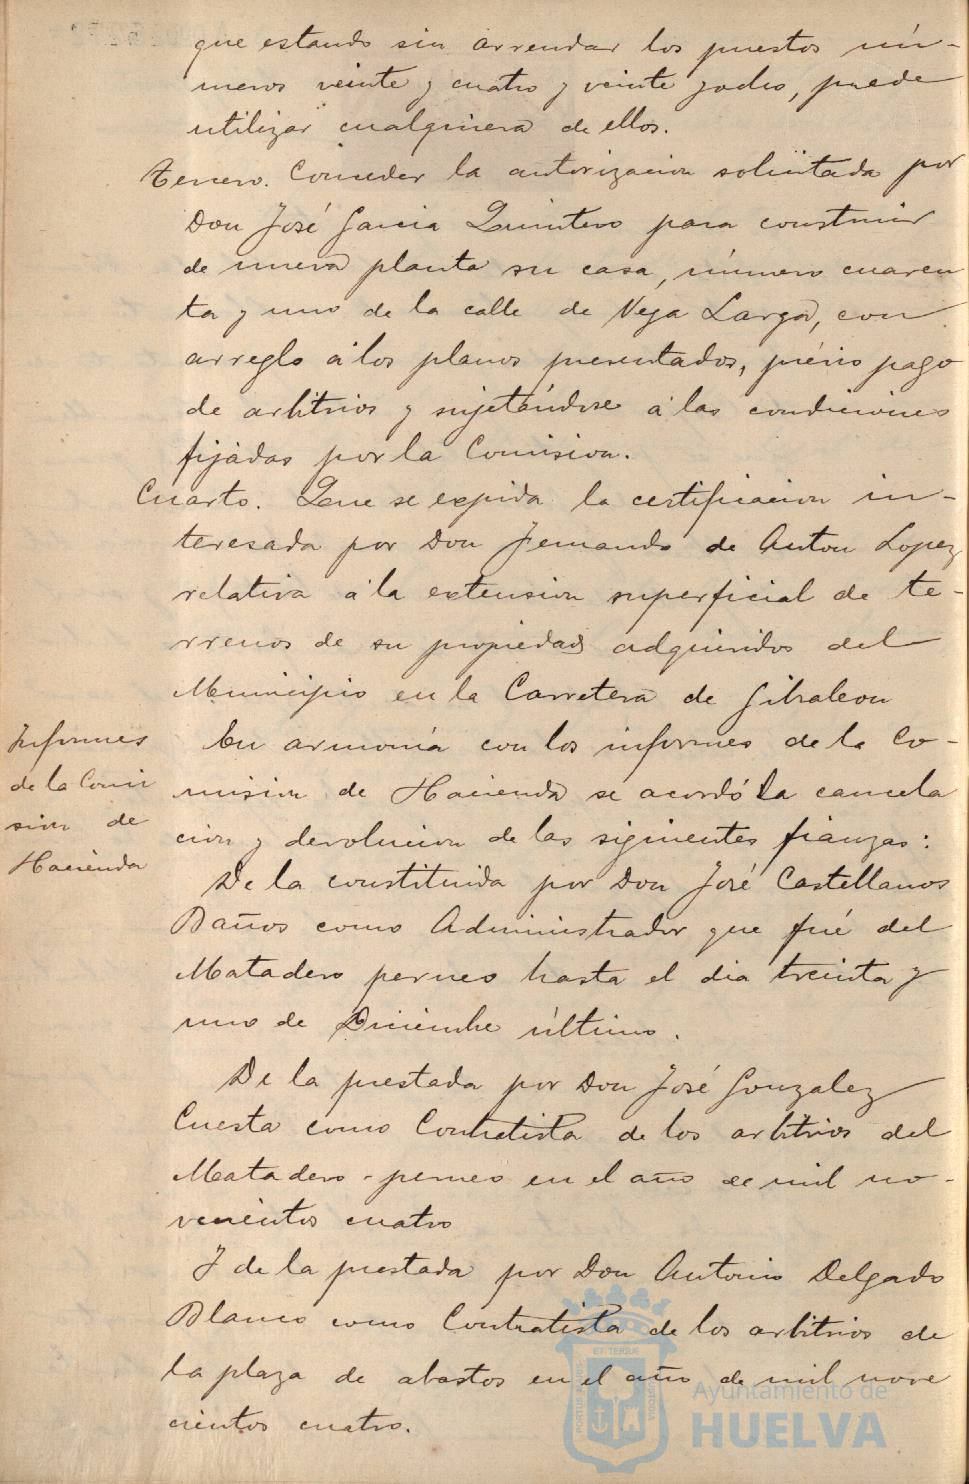 que estando sin arrendar los puestos nú-
meros veinte y cuatro y veinte y ocho, puede
utilizar cualquiera de ellos.
Tercero. Conceder la autorizacion solicitada por
Don José Garcia Quintero para construir
de nueva planta su casa, número cuaren
ta y uno de la calle de Vega Larga, con
arreglo á los planos presentados, prévio pago
de arbitrios y sujetándose á las condiciones
fijadas por la Comision.
Cuarto. Que se expida la certificacion in-
teresada por Don Fernando de Anton Lopez
relativa á la extension superficial de te-
rrenos de su propiedad adquiridos del
Municipio en la Carretera de Gibraleon
Informes
de la Comi
sion de
Hacienda
En armonía con los informes de la Co-
mision de Hacienda se acordó la cancela
cion y devolucion de las siguientes fianzas:
De la constituida por Don José Castellanos
Baños como Administrador que fué del
Matadero perneo hasta el dia treinta y
uno de Diciembre último.
De la prestada por Don José Gonzalez
Cuesta como Contratista de los arbitrios del
Matadero-perneo en el año de mil no-
vecientos cuatro
Y de la prestada por Don Antonio Delgado
Blanco como Contratista de los arbitrios de
la plaza de abastos en el año de mil nove
cientos cuatro.
Ayuntamiento de
HUELVA